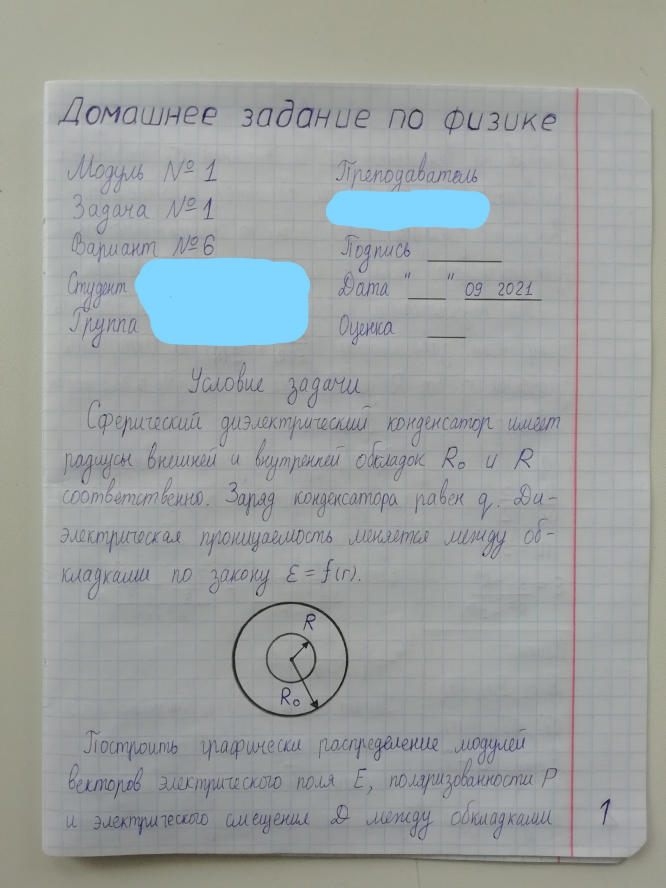 Домашнее задание по физике
Модуль № 1
Преподаватель
Задача № 1
Вариант № 6
Подпись
Студент
Дата "__" 09 2021
Группа
Оценка
Условие задачи
Сферический диэлектрический конденсатор имеет
радиусы внешней и внутренней обкладок R₀ и R
соответственно. Заряд конденсатора равен q. Ди-
электрическая проницаемость меняется между об-
кладками по закону ε = f(r).
R
R₀
Построить графически распределение модулей
векторов электрического поля E, поляризованности P
и электрического смещения D между обкладками
1